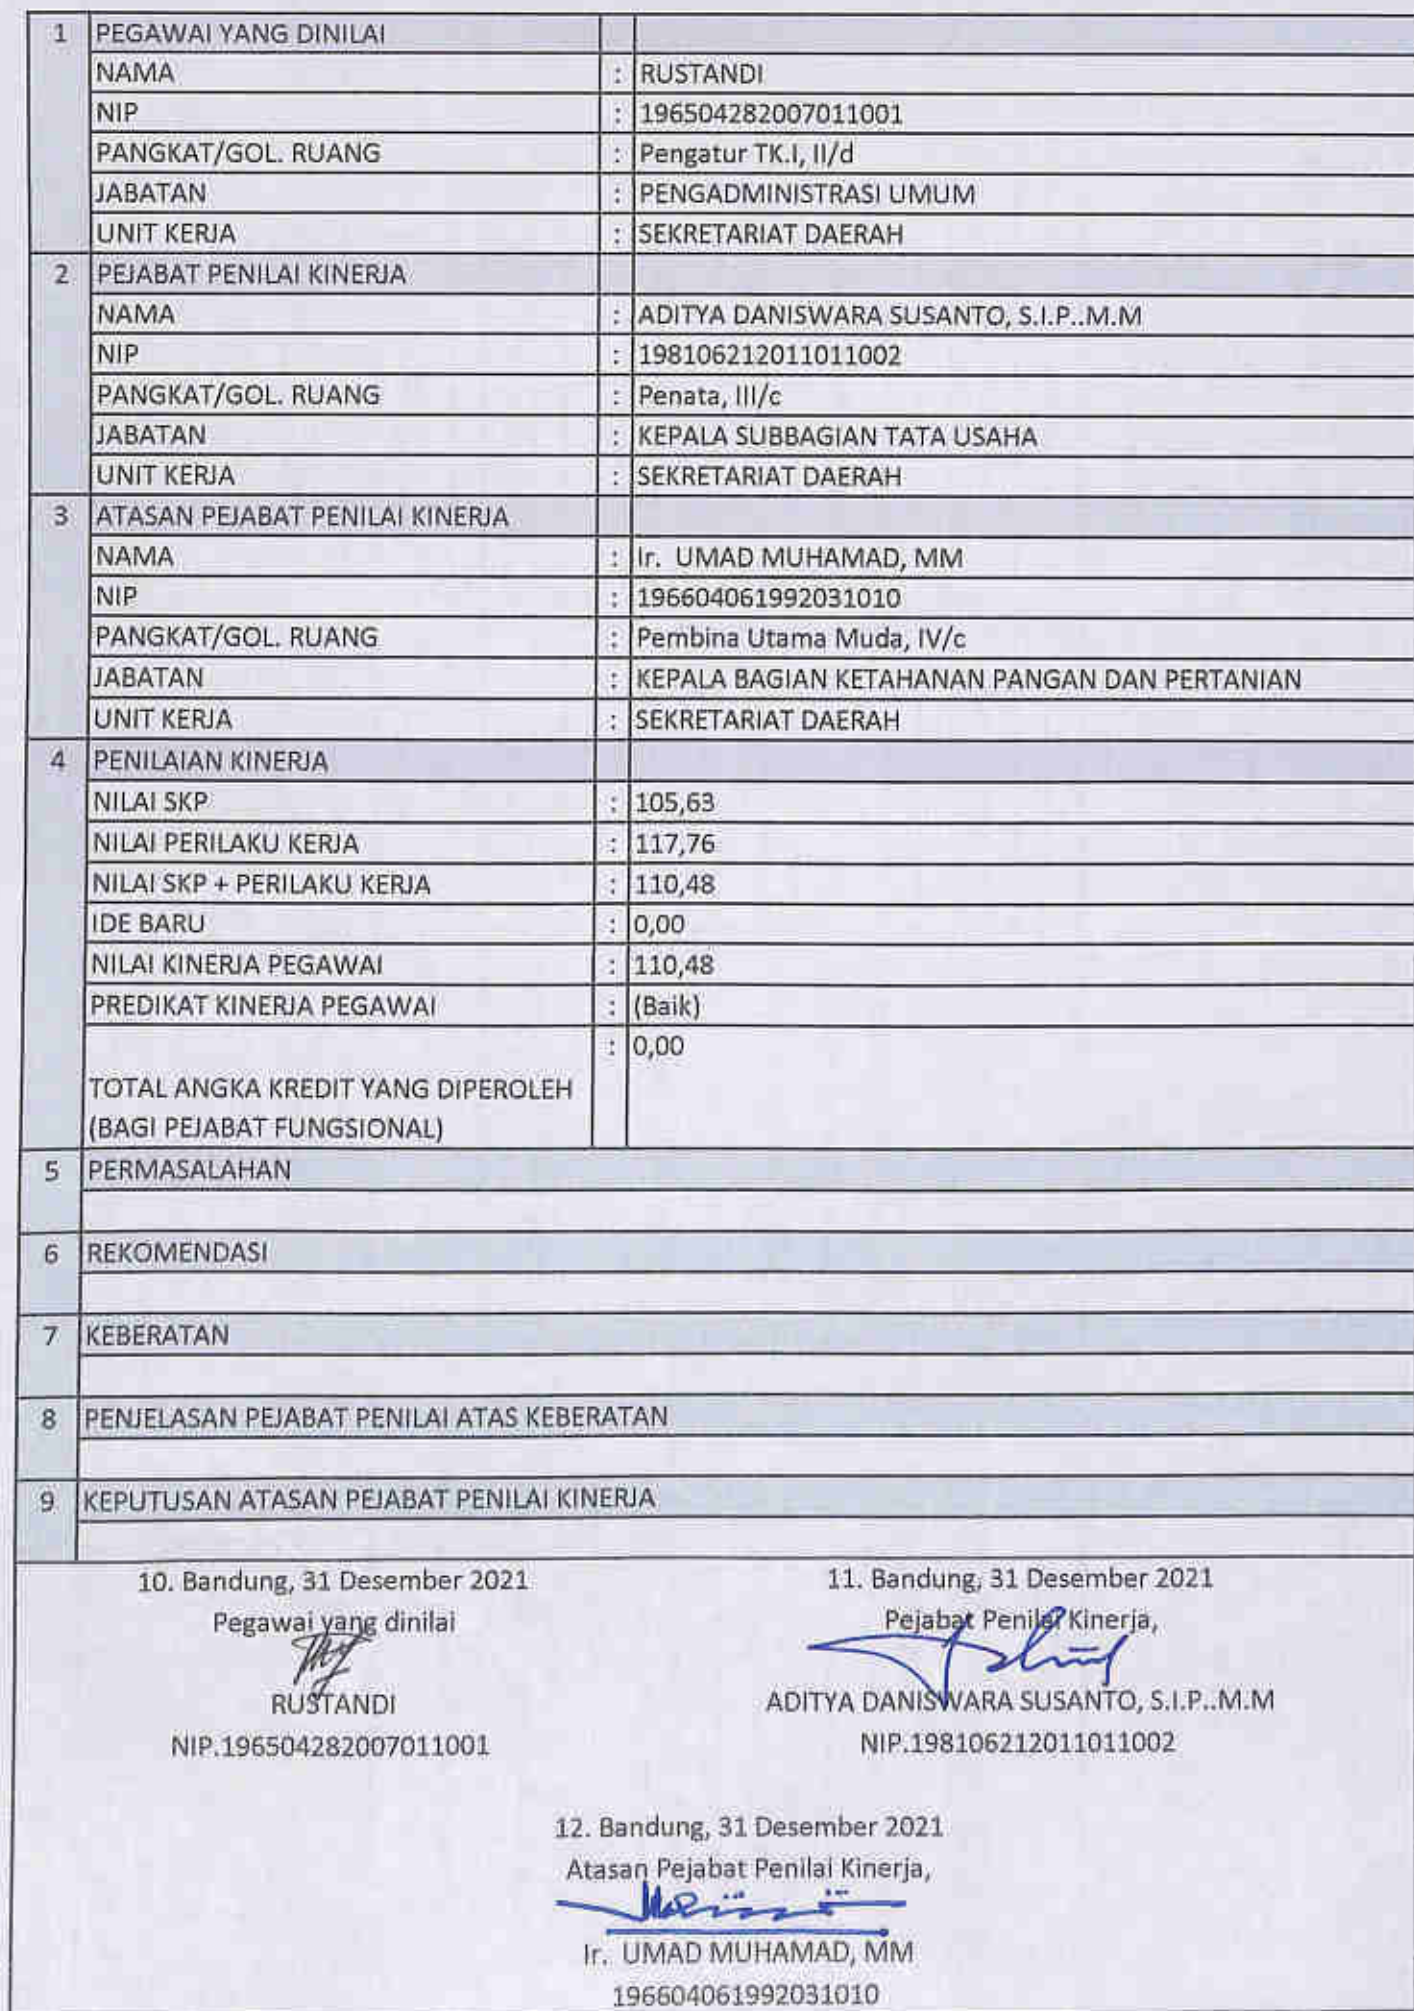 1 PEGAWAI YANG DINILAI
NAMA : RUSTANDI
NIP : 196504282007011001
PANGKAT/GOL. RUANG : Pengatur TK.I, II/d
JABATAN : PENGADMINISTRASI UMUM
UNIT KERJA : SEKRETARIAT DAERAH
2 PEJABAT PENILAI KINERJA
NAMA : ADITYA DANISWARA SUSANTO, S.I.P..M.M
NIP : 198106212011011002
PANGKAT/GOL. RUANG : Penata, III/c
JABATAN : KEPALA SUBBAGIAN TATA USAHA
UNIT KERJA : SEKRETARIAT DAERAH
3 ATASAN PEJABAT PENILAI KINERJA
NAMA : Ir. UMAD MUHAMAD, MM
NIP : 196604061992031010
PANGKAT/GOL. RUANG : Pembina Utama Muda, IV/c
JABATAN : KEPALA BAGIAN KETAHANAN PANGAN DAN PERTANIAN
UNIT KERJA : SEKRETARIAT DAERAH
4 PENILAIAN KINERJA
NILAI SKP : 105,63
NILAI PERILAKU KERJA : 117,76
NILAI SKP + PERILAKU KERJA : 110,48
IDE BARU : 0,00
NILAI KINERJA PEGAWAI : 110,48
PREDIKAT KINERJA PEGAWAI : (Baik)
: 0,00
TOTAL ANGKA KREDIT YANG DIPEROLEH
(BAGI PEJABAT FUNGSIONAL)
5 PERMASALAHAN
6 REKOMENDASI
7 KEBERATAN
8 PENJELASAN PEJABAT PENILAI ATAS KEBERATAN
9 KEPUTUSAN ATASAN PEJABAT PENILAI KINERJA
10. Bandung, 31 Desember 2021
Pegawai yang dinilai
RUSTANDI
NIP.196504282007011001
11. Bandung, 31 Desember 2021
Pejabat Penilai Kinerja,
ADITYA DANISWARA SUSANTO, S.I.P..M.M
NIP.198106212011011002
12. Bandung, 31 Desember 2021
Atasan Pejabat Penilai Kinerja,
Ir. UMAD MUHAMAD, MM
196604061992031010